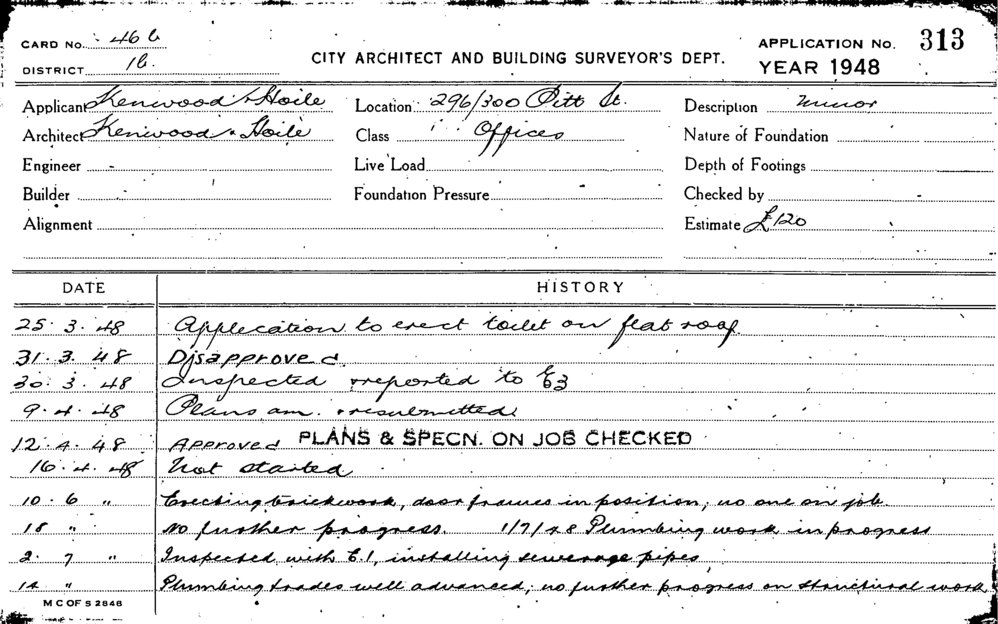 CARD No. 46 b
DISTRICT 1b.
CITY ARCHITECT AND BUILDING SURVEYOR'S DEPT.
APPLICATION No. 313
YEAR 1948
Applicant Kenwood & Hoile Location 296/300 Pitt St. Description Minor
Architect Kenwood & Hoile Class Offices Nature of Foundation
Engineer - Live Load Depth of Footings
Builder Foundation Pressure Checked by
Alignment Estimate £120
DATE HISTORY
25. 3. 48 Application to erect toilet on flat roof
31. 3. 48 Disapproved
30. 3. 48 Inspected & reported to E3
9. 4. 48 Plans am. & resubmitted
12. 4. 48 Approved PLANS & SPECN. ON JOB CHECKED
16. 4. 48 Not started
10. 6 " Erecting brickwork, door frames in position; no one on job.
18 " No further progress. 1/7/48 Plumbing work in progress
2. 7 " Inspected with E.1, installing sewerage pipes
14 " Plumbing trades well advanced; no further progress on structural work
M C OF S 2848